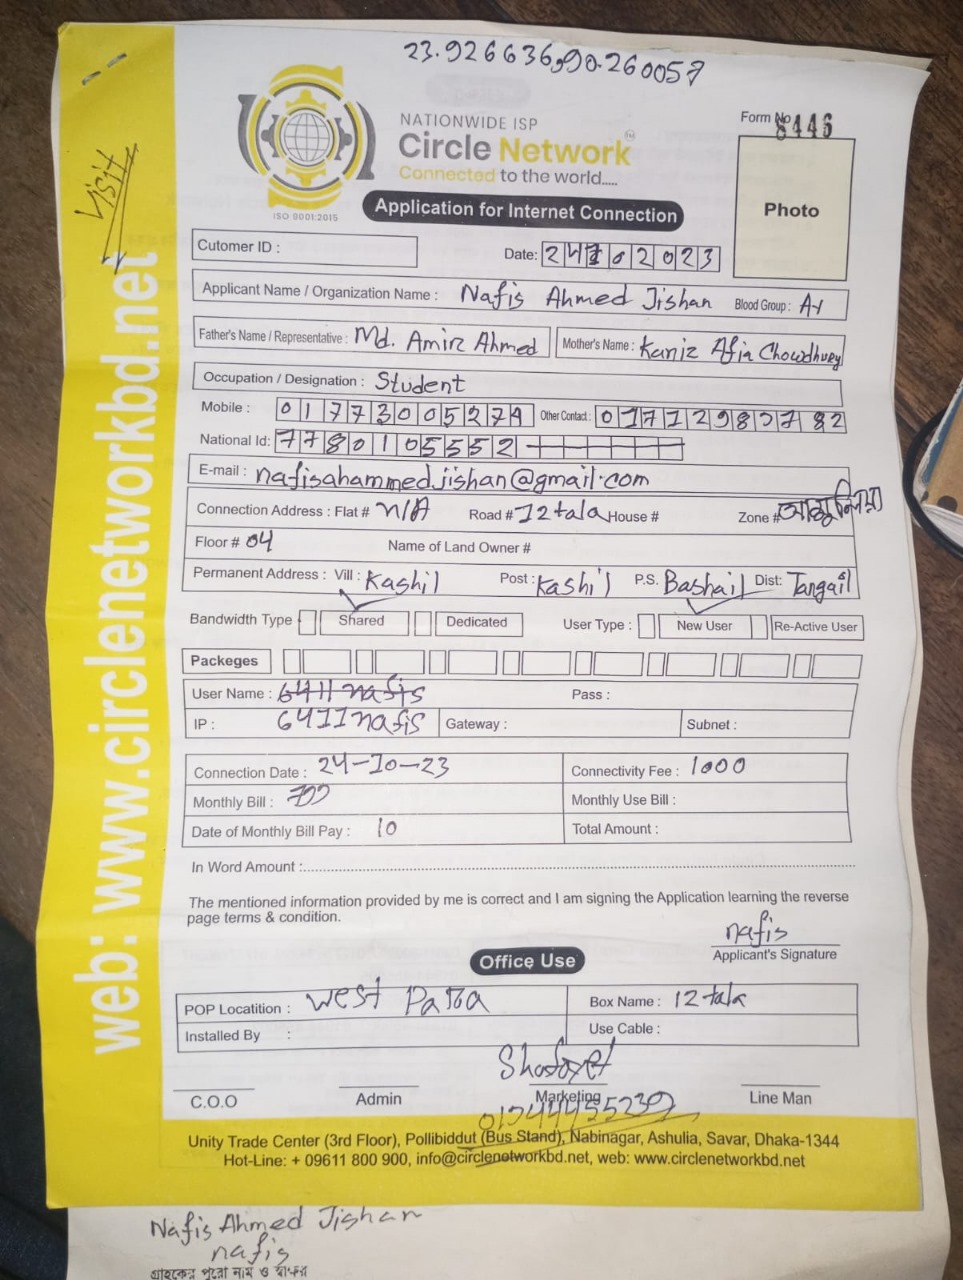 23.926636,90.260057
Visit
web: www.circlenetworkbd.net
NATIONWIDE ISP
Circle Network
Connected to the world.....
ISO 9001:2015
Form No 8446
Photo
Application for Internet Connection
Cutomer ID :
Date: 24102023
Applicant Name / Organization Name : Nafis Ahmed Jishan Blood Group :
Father's Name / Representative : Md. Amir Ahmed Mother's Name : Kaniz Afia Chowdhury
Occupation / Designation : Student
Mobile : 01773005274 Other Contact :
National Id: 7780105552
E-mail : nafisahammedjishan@gmail.com
Connection Address : Flat # N/A Road # 12 tala House # Zone #
Floor # 04 Name of Land Owner #
Permanent Address : Vill : Kashil Post : Kashil P.S. Bashail Dist: Tangail
Bandwidth Type Shared Dedicated User Type : New User Re-Active User
Packeges
User Name : 6411nafis Pass :
IP : 6411nafis Gateway : Subnet :
Connection Date : 24-10-23 Connectivity Fee : 1000
Monthly Bill : Monthly Use Bill :
Date of Monthly Bill Pay : 10 Total Amount :
In Word Amount :
The mentioned information provided by me is correct and I am signing the Application learning the reverse
page terms & condition.
nafis
Applicant's Signature
Office Use
POP Locatition : West Para Box Name : 12 tala
Installed By : Use Cable :
C.O.O Admin Marketing Line Man
Unity Trade Center (3rd Floor), Pollibiddut (Bus Stand), Nabinagar, Ashulia, Savar, Dhaka-1344
Hot-Line: + 09611 800 900, info@circlenetworkbd.net, web: www.circlenetworkbd.net
Nafis Ahmed Jishan
nafis
গ্রাহকের পুরো নাম ও স্বাক্ষর